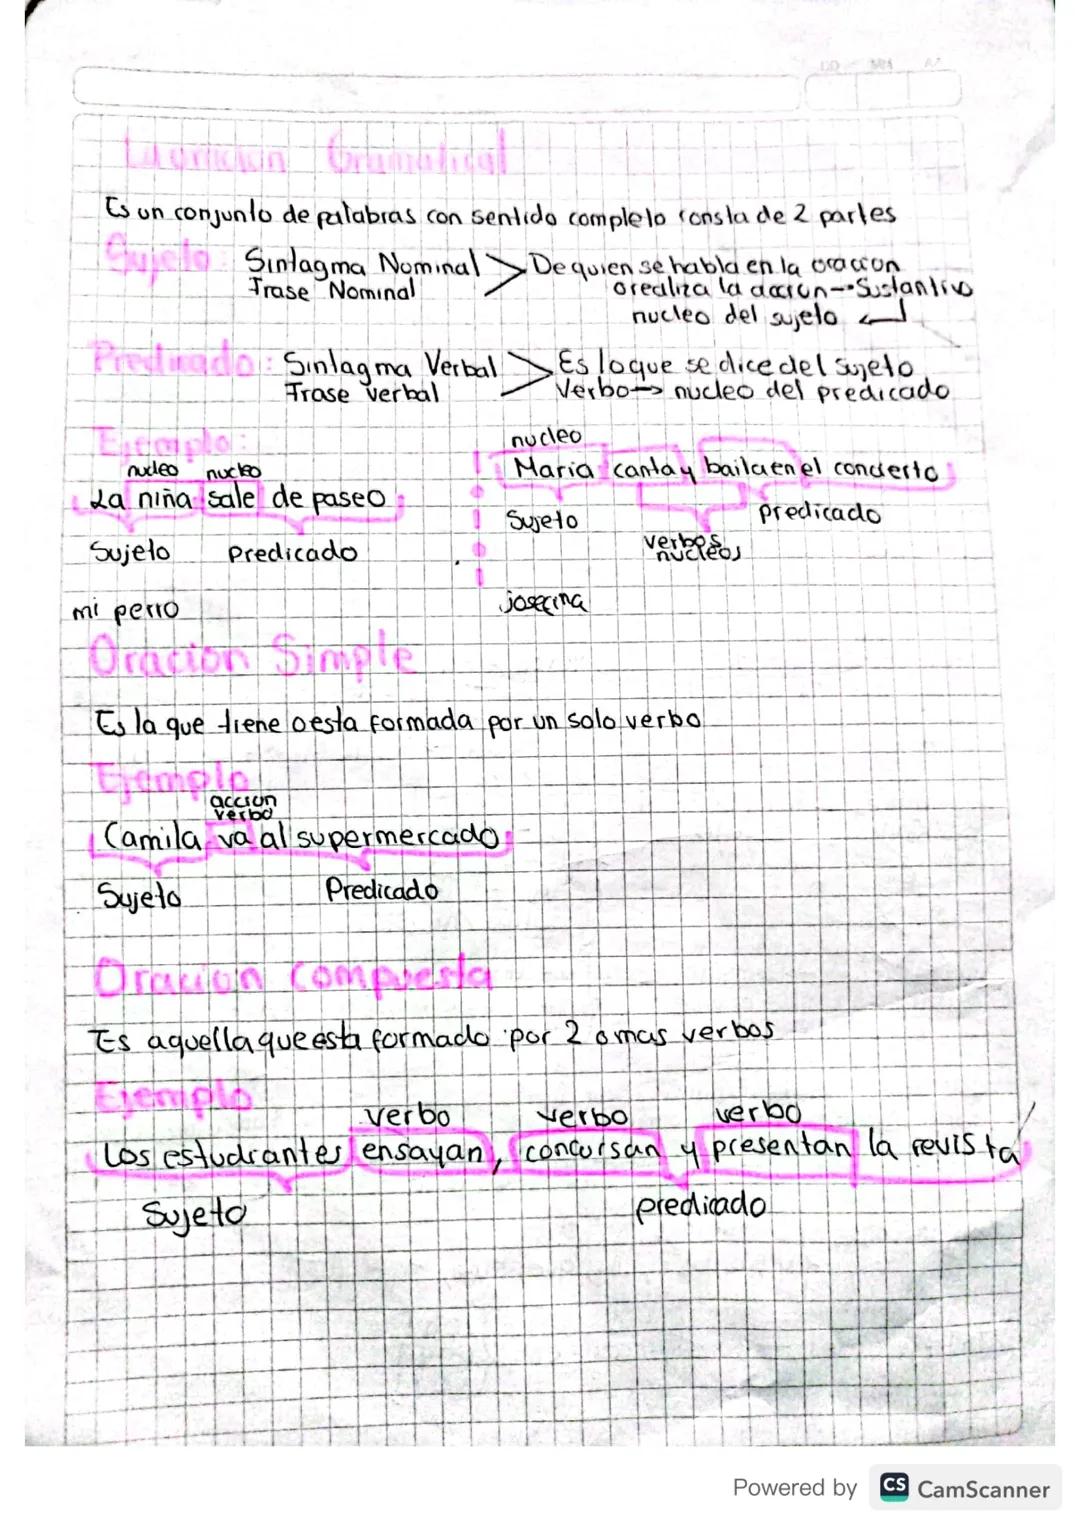 La oracion Gramatical
Es un conjunto de palabras con sentido completo consta de 2 partes
Sujeto: Sintagma Nominal > De quien se habla en la oracion
Frase Nominal o realiza la accion → Sustantivo
nucleo del sujeto
Predicado: Sintagma Verbal > Es lo que se dice del sujeto
Frase verbal Verbo → nucleo del predicado
Ejemplo:
nucleo nucleo
La niña sale de paseo
Sujeto Predicado
mi perro
nucleo
Maria canta y baila en el concierto
Sujeto predicado
verbos
nucleos
josefina
Oracion Simple
Es la que tiene o esta formada por un solo verbo
Ejemplo
accion
verbo
Camila va al supermercado
Sujeto Predicado
Oracion compuesta
Es aquella que esta formado por 2 o mas verbos
Ejemplo
verbo verbo verbo
Los estudiantes ensayan, concursan y presentan la revista
Sujeto predicado
Powered by CS CamScanner